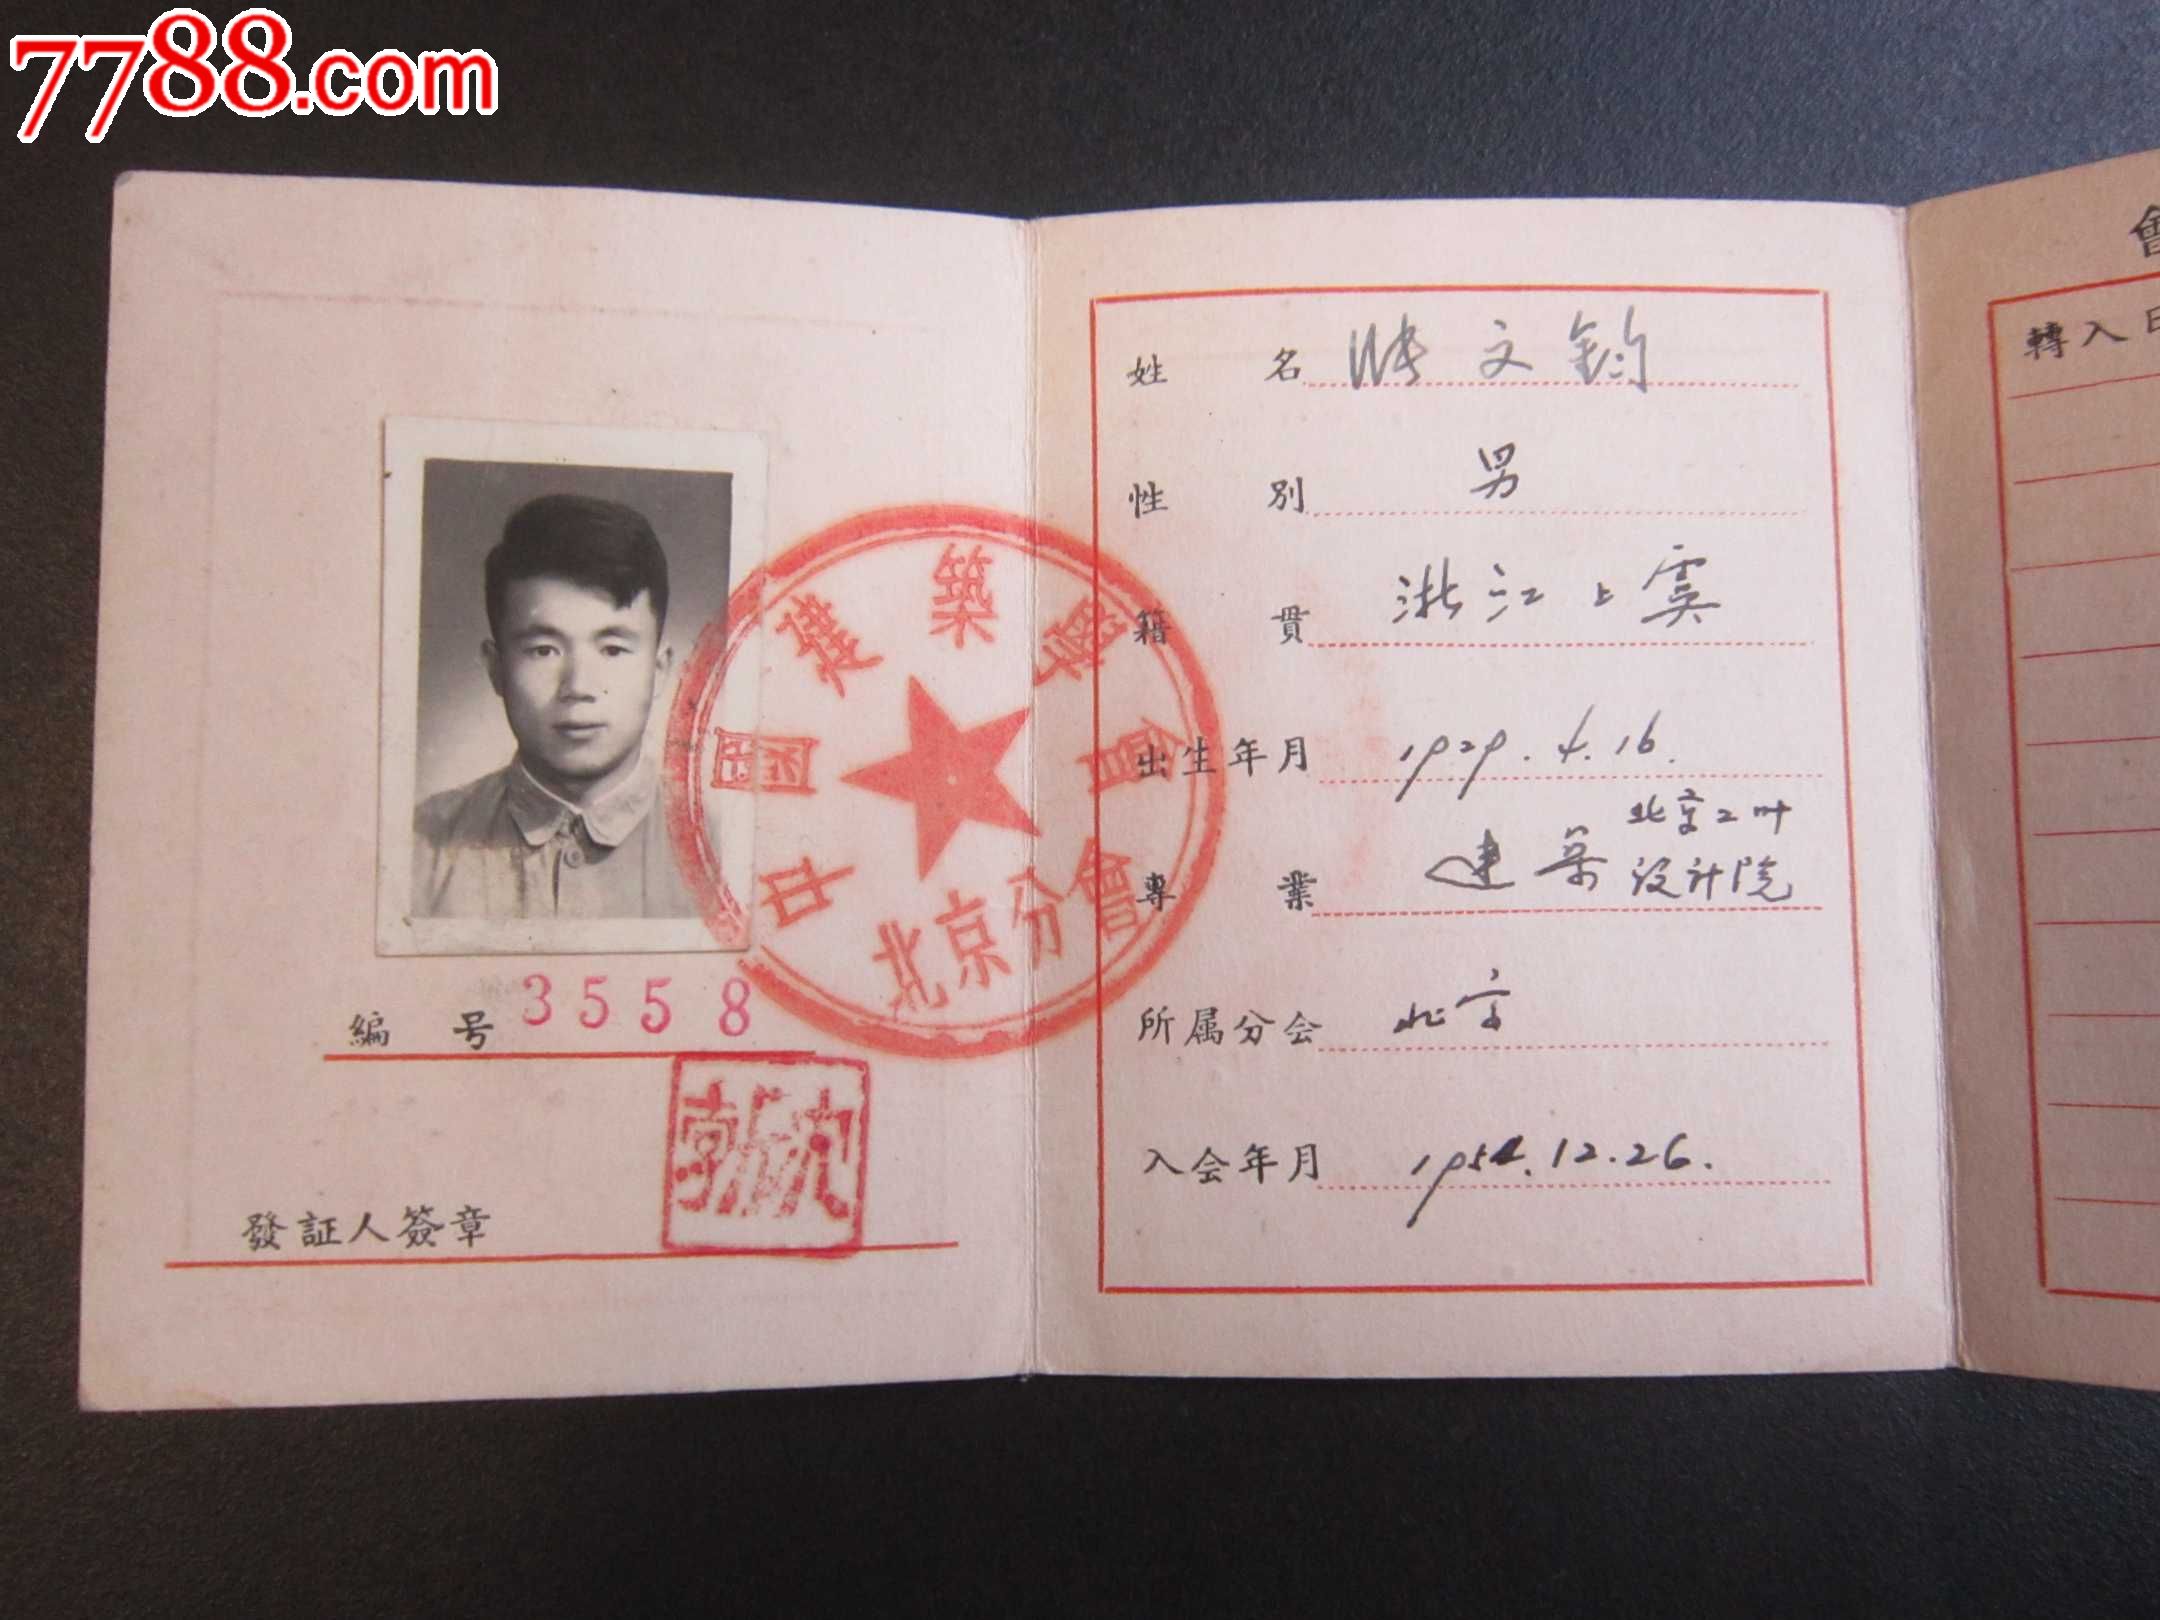 7788.com
中國建築學會
北京分會
編号 3558
發証人簽章
姓名 張文鈞
性别 男
籍貫 浙江上虞
出生年月 1929.4.16.
專業 建築 北京工业
设计院
所属分会 北京
入会年月 1954.12.26.
會
轉入日